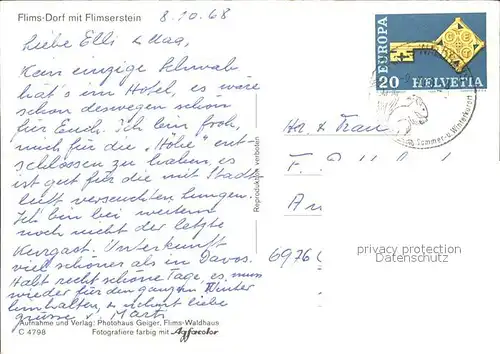 Flims-Dorf mit Flimserstein
8.10.68
Liebe Elli & Mag,
Kein einzige Schwab
hät's im Hotel, es wäre
schon deswegen schon
für Euch. Ich bin froh,
mich für die "Höhe" ent-
schlossen zu haben, es
ist gut für die mit Stadt
luft verseuchten Lungen.
Ich bin bei weitem
noch nicht der letzte
Kurgast. Unterkunft
viel schöner als in Davos.
Habt recht schöne Tage, es muss
wieder für den ganzen Winter
hinhalten, & schönt liebe
grüsse v. Marti
Aufnahme und Verlag: Photohaus Geiger, Flims-Waldhaus
C 4798 Fotografiere farbig mit Agfacolor
Reproduktion verboten
EUROPA
20 HELVETIA
Sommer- u. Winterkurort
Hr. & Frau
F.
6976
privacy protection
ansichtskartenversand.com